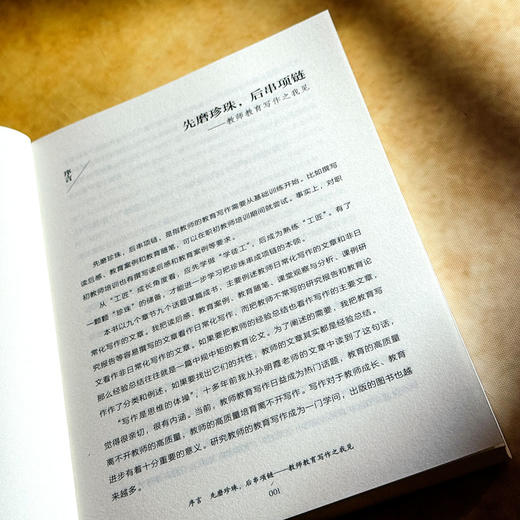 序言
先磨珍珠，后串项链
——教师教育写作之我见
先磨珍珠，后串项链，是指教师的教育写作需要从基础训练开始。比如撰写
读后感、教育案例和教育随笔，可以在职初教师培训期间就尝试。事实上，对职
初教师培训也有撰写读后感和教育案例等要求。
从“工匠”成长角度看，应先学做“学徒工”，后成为熟练“工匠”。有了
一颗颗“珍珠”的储备，才能进一步学习把珍珠串成项链的本领。
本书以九个章节九个话题谋篇成书，主要例述教师日常化写作的文章和非日
常化写作的文章。我把读后感、教育案例、教育随笔、课堂观察与分析、课例研
究报告等容易撰写的文章看作日常化写作，而把教师不常写的研究报告和教育论
文看作非日常化写作的文章。如果要把教师的经验总结也看作写作的主要文章，
那么经验总结往往就是一篇中规中矩的教育论文。为了阐述的需要，我把教育写
作作了分类和例述，如果要找出它们的共性，教师的文章其实都是经验总结。
“写作是思维的体操”，十多年前我从孙明霞老师的文章中读到了这句话，
觉得很亲切，很有内涵。当前，教师教育写作日益成为热门话题，教育的高质量
离不开教师的高质量，教师的高质量培育离不开写作。写作对于教师成长、教育
进步有着十分重要的意义。研究教师的教育写作成为一门学问，出版的图书也越
来越多。
序言 先磨珍珠，后串项链——教师教育写作之我见
001